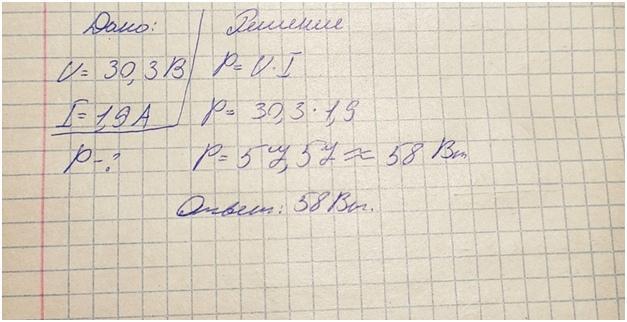 Дано:
Решение
U = 30,3 В
P = U · I
I = 1,9 А
P = 30,3 · 1,9
P - ?
P = 57,57 ≈ 58 Вт
Ответ: 58 Вт.